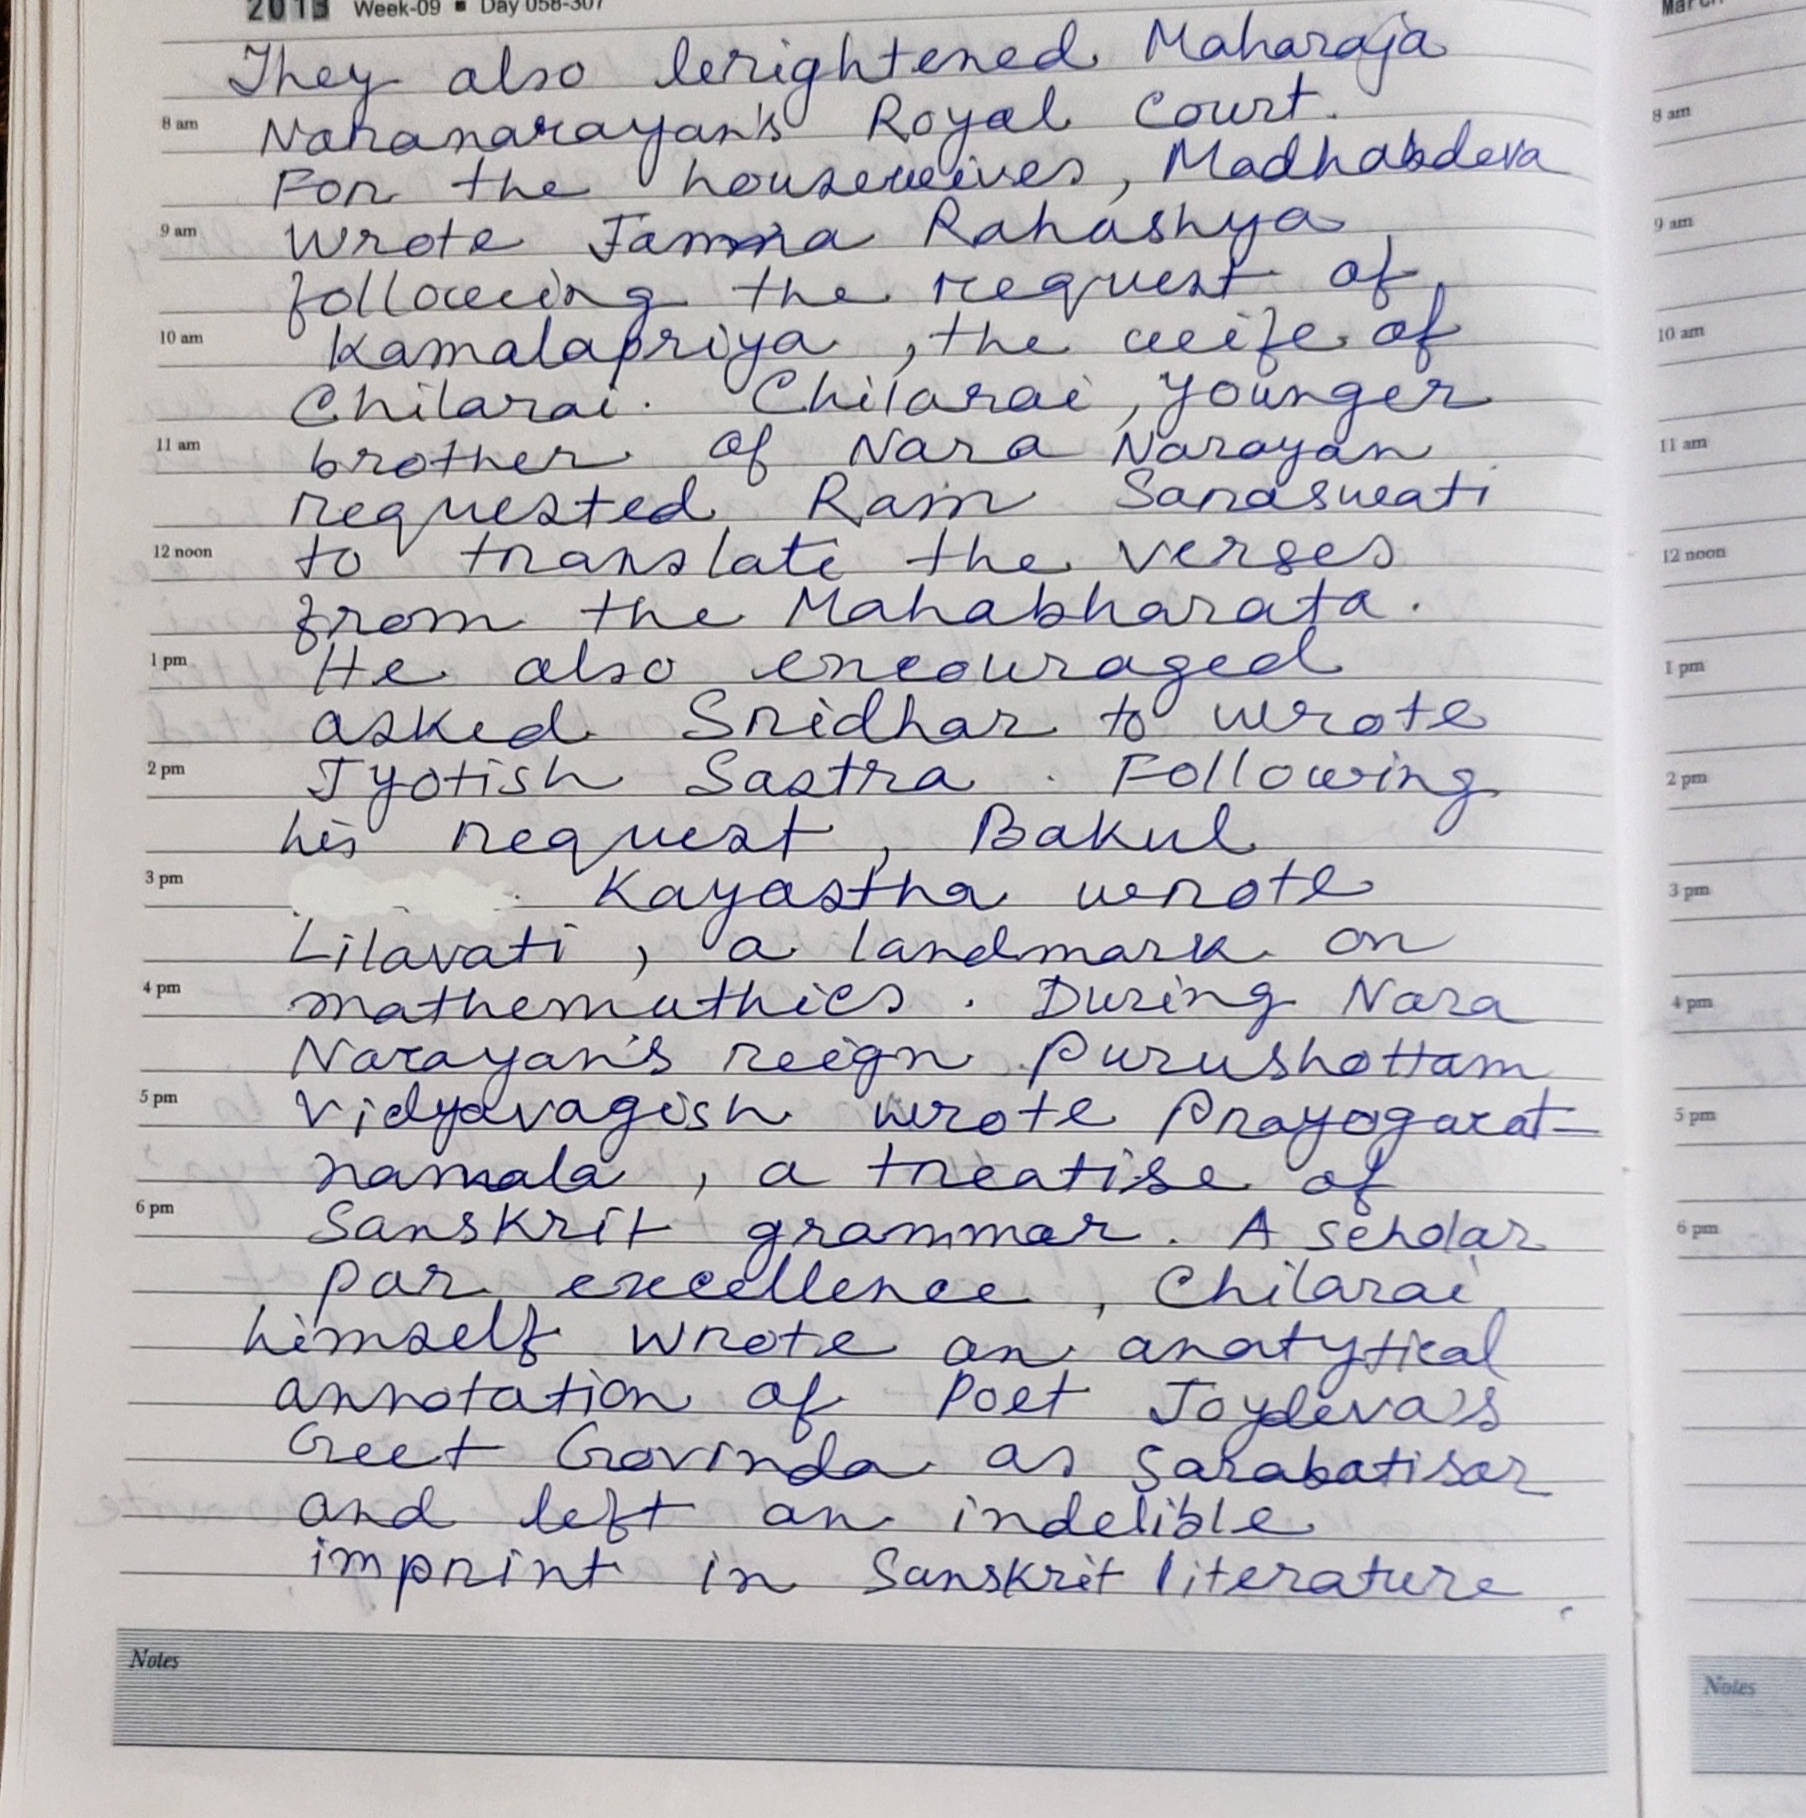 2013 Week-09 ▪ Day 058-307
They also brightened Maharaja
8 am Naranarayan's Royal Court.
For the housewives, Madhabdeva
9 am wrote Jamma Rahashya
following the request of
10 am Kamalapriya, the wife of
Chilarai. Chilarai, younger
11 am brother of Nara Narayan
requested Ram Saraswati
12 noon to translate the verses
from the Mahabharata.
1 pm He also encouraged
asked Sridhar to wrote
2 pm Jyotish Sastra. Following
his request, Bakul
3 pm Kayastha wrote
Lilavati, a landmark on
4 pm mathemathics. During Nara
Narayan's reign Purushottam
5 pm Vidyavagish wrote Prayogarat-
namala, a treatise of
6 pm Sanskrit grammar. A scholar
par excellence, Chilarai
himself wrote an analytical
annotation of Poet Joydeva's
Geet Govinda as Sarabatisar
and left an indelible
imprint in Sanskrit literature.
Notes
March
8 am
9 am
10 am
11 am
12 noon
1 pm
2 pm
3 pm
4 pm
5 pm
6 pm
Notes